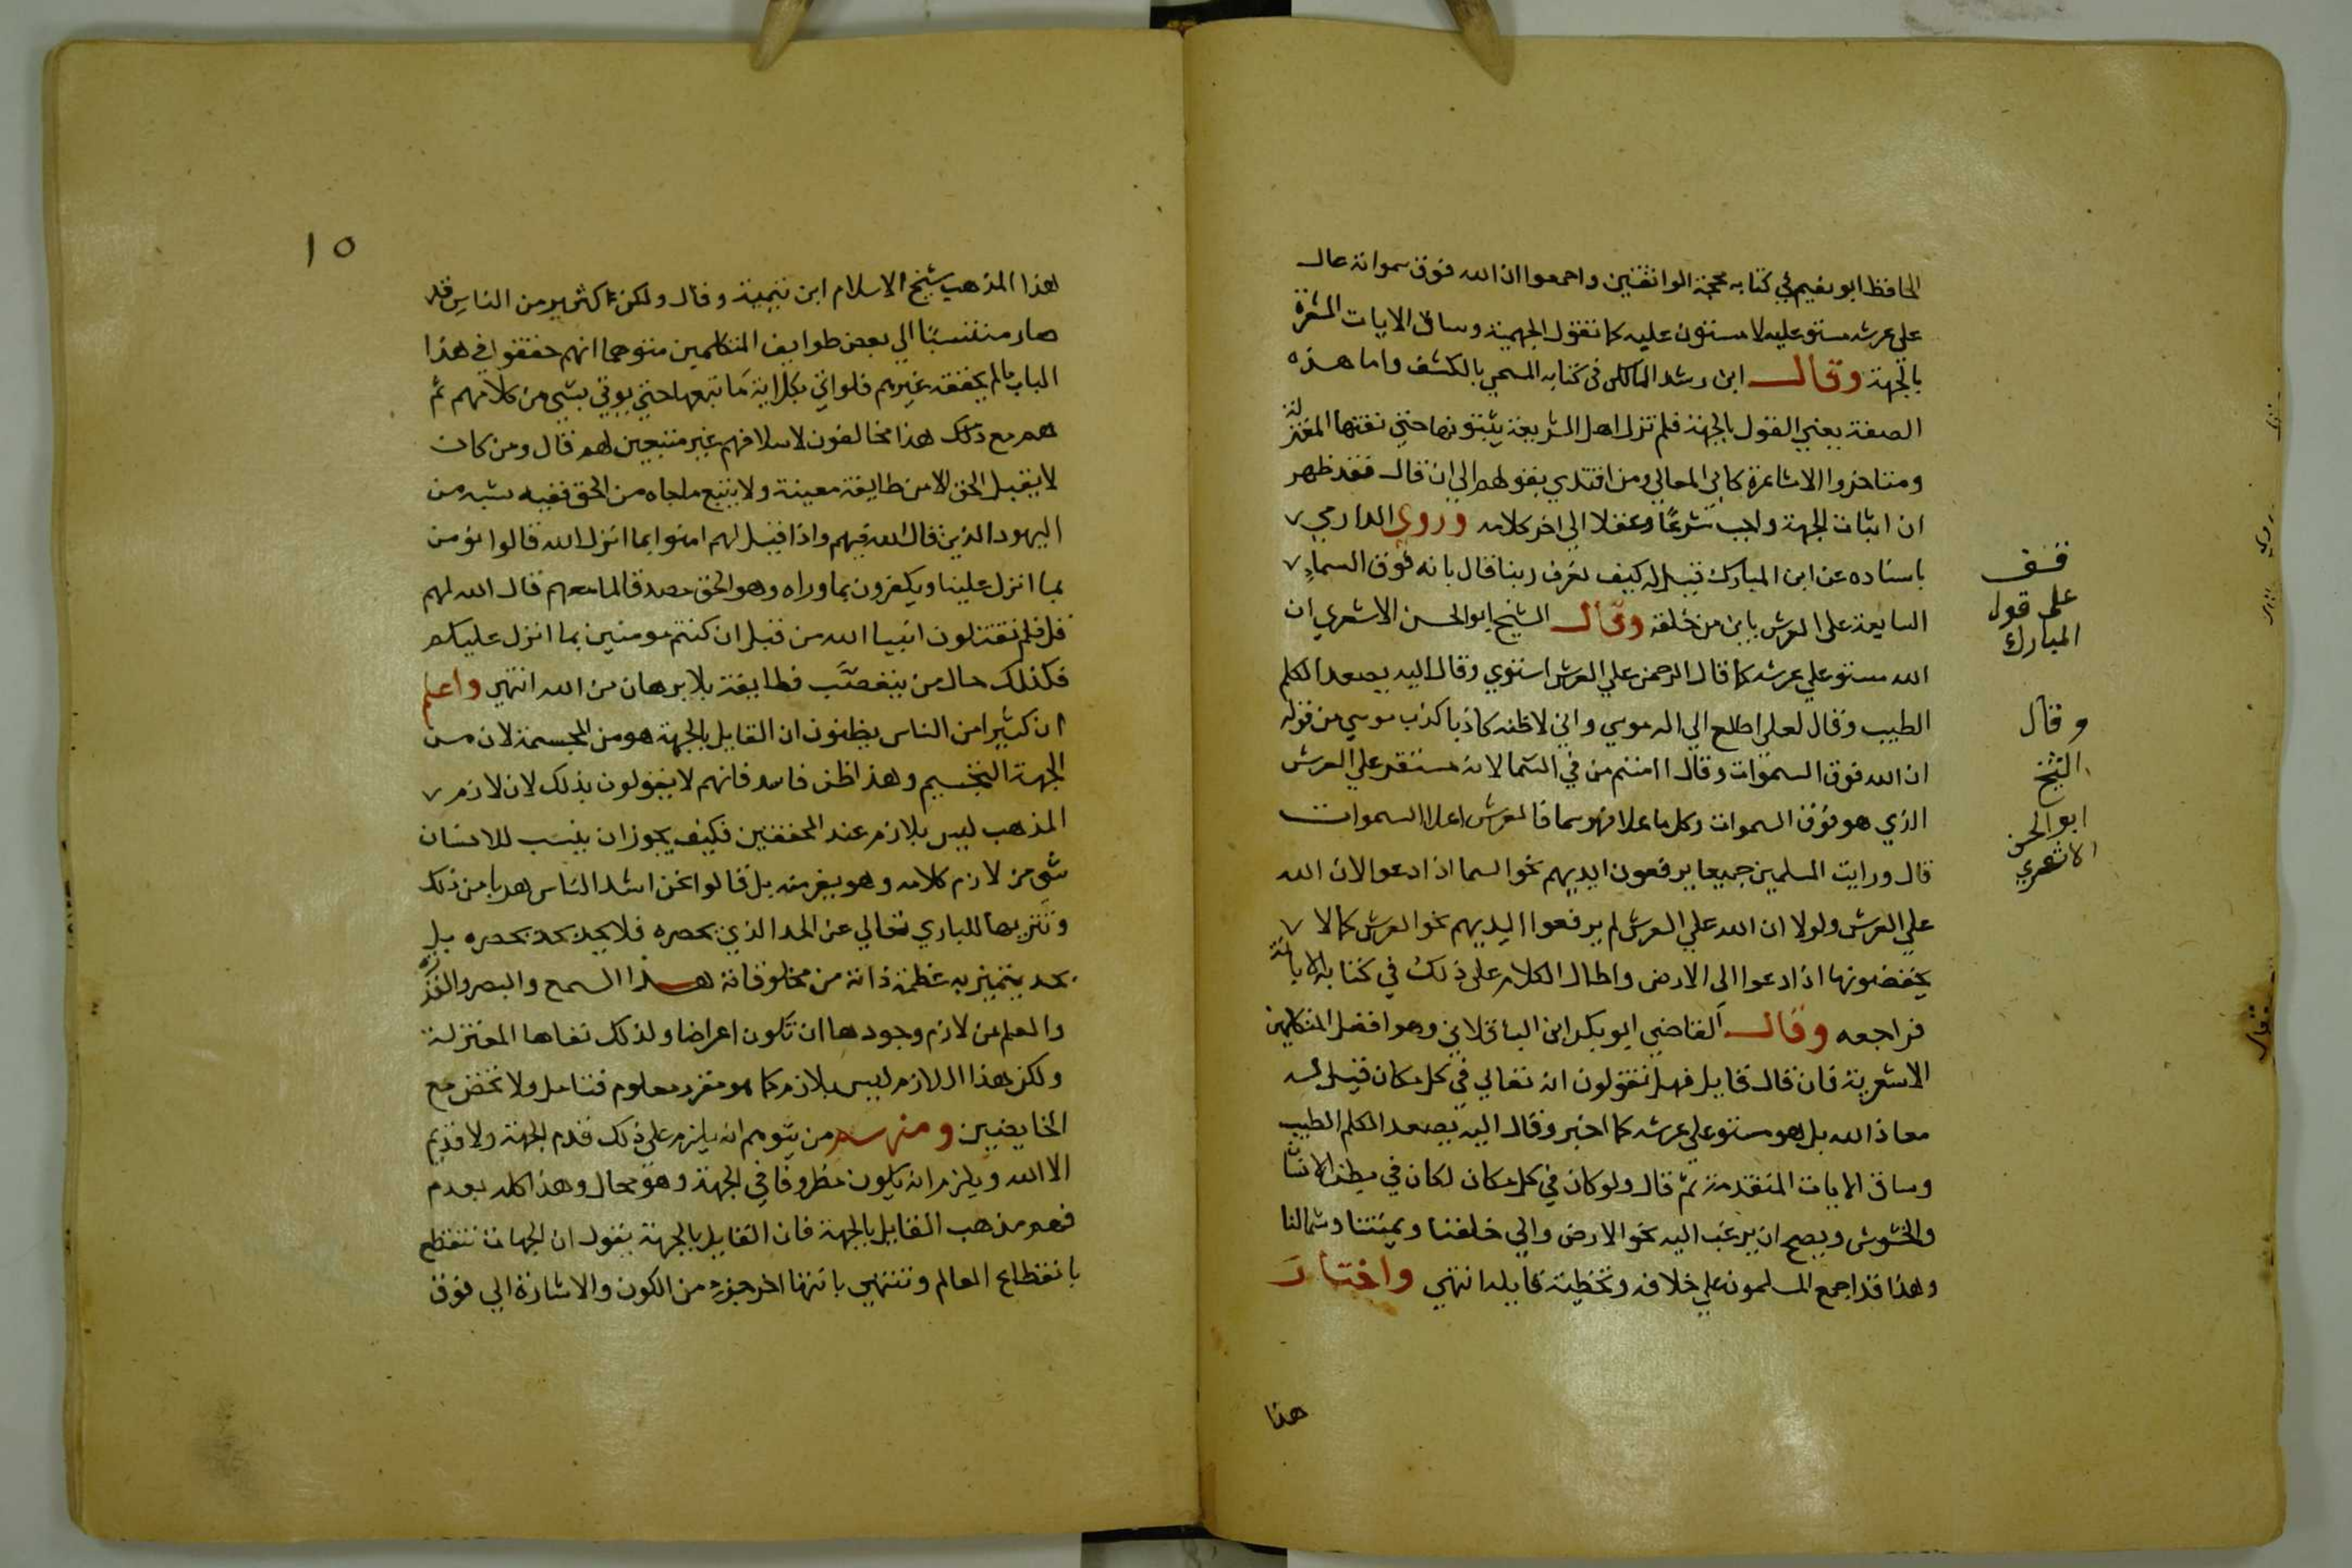 الحافظ ابو نعيم في كتابه محجة الواثقين واجمعوا ان الله فوق سمواته عال
على عرشه مستو عليه لا مستول عليه كما تقول الجهمية وساق الايات المشعرة
بالجهة وقال ابن رشد المالكي في كتابه المسمي بالكشف واما هذه
الصفة يعني القول بالجهة فلم تزل اهل الشريعة يثبتونها حتي نفتها المعتزلة
ومتاخروا الاشاعرة كابي المعالي ومن اقتدي بقولهم الي ان قال فقد ظهر
ان اثبات الجهة واجب شرعا وعقلا الي اخر كلامه وروي الدارمي
باسناده عن ابن المبارك قيل له كيف نعرف ربنا قال بانه فوق السماء
السابعة على العرش باين من خلقه وقال الشيخ ابو الحسن الاشعري ان
الله مستو علي عرشه كما قال الرحمن علي العرش استوي وقال اليه يصعد الكلم
الطيب وقال لعلي اطلع الي اله موسي واني لاظنه كاذبا كذب موسي من قوله
ان الله فوق السموات وقال اامنتم من في السما لانه مستقر علي العرش
الذي هو فوق السموات وكل ما علا فهو سما فالعرش اعلا السموات
قال ورايت المسلمين جميعا يرفعون ايديهم نحو السما اذا دعوا لان الله
علي العرش ولولا ان الله علي العرش لم يرفعوا ايديهم نحو العرش كما لا
يخفضونها اذا دعوا الى الارض واطال الكلام على ذلك في كتابه الابانة
فراجعه وقال القاضي ابو بكر ابن الباقلاني وهو افضل المتكلمين
الاشعرية فان قال قايل فهل تقولون انه تعالي في كل مكان قيل له
معاذ الله بل هو مستو علي عرشه كما اخبر وقال اليه يصعد الكلم الطيب
وساق الايات المتقدمة ثم قال ولو كان في كل مكان لكان في بطن الانسان
والحشوش ويصح ان يرغب اليه نحو الارض والي خلفنا ويمنتنا وشمالنا
وهذا قد اجمع المسلمون علي خلافه وتخطية قايله انتهي واختار
هذا
قف
على قول
المبارك
وقال
الشيخ
ابو الحسن
الاشعري
١٥
هذا المذهب شيخ الاسلام ابن تيمية وقال ولكن كثير من الناس قد
صار منتسبا الي بعض طوايف المتكلمين متوهما انهم حققوا في هذا
الباب ما لم يحققه غيرهم فلو اتي بكل اية ما تبعها حتي يوتي بشي من كلامهم ثم
هم مع ذلك هذا مخالفون لاسلافهم غير متبعين لهم قال ومن كان
لا يقبل الحق الا من طايفة معينة ولا يتبع ما جاه من الحق ففيه شبه من
اليهود الذين قال الله فيهم واذا قيل لهم امنوا بما انزل الله قالوا نؤمن
بما انزل علينا ويكفرون بما وراه وهو الحق مصدقا لما معهم قال الله لهم
قل فلم تقتلون انبيا الله من قبل ان كنتم مومنين بما انزل عليكم
فكذلك حال من يتعصب لطايفة بلا برهان من الله انتهي واعلم
ان كثيرا من الناس يظنون ان القايل بالجهة هو من المجسمة لان من
الجهة التجسيم وهذا ظن فاسد فانهم لا يقولون بذلك لان لازم
المذهب ليس بلازم عند المحققين فكيف يجوز ان ينسب للانسان
شي من لازم كلامه وهو يفر منه بل قالوا نحن اشد الناس هربا من ذلك
وتنزيها للباري تعالي عن الحد الذي يحصره فلا يحد بحد يحصره بل
بحد يتميز به عظمة ذاته من مخلوقاته هذا السمع والبصر والقدرة
والعلم من لازم وجودها ان تكون اعراضا ولذلك نفاها المعتزلة
ولكن هذا اللازم ليس بلازم كما هو مقرر معلوم فتامل ولا تخض مع
الخايضين ومنهم من يتوهم انه يلزم على ذلك قدم الجهة ولا قديم
الا الله ويلزم ان يكون مظروفا في الجهة وهو محال وهذا كله بعدم
فهم مذهب القايل بالجهة فان القايل بالجهة يقول ان الجهات تنقطع
بانقطاع العالم وتنتهي بانتها اخر جزء من الكون والاشارة الي فوق